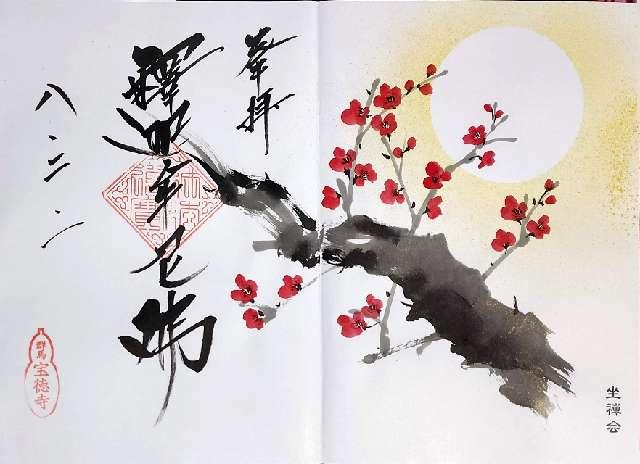 奉拝
釋迦牟尼佛
八.二.一
群馬
宝徳寺
坐禅会